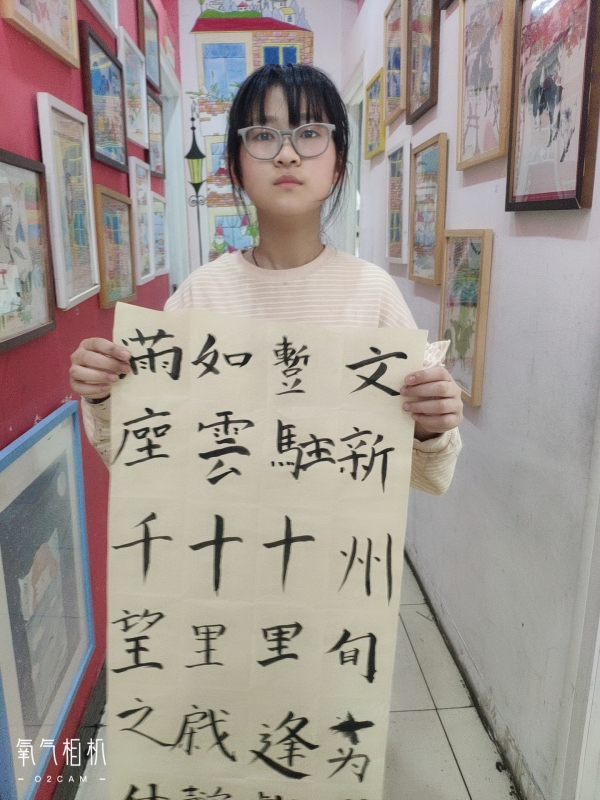 文新州旬为
駐十里逢
如雲十里
滿座千望之
氧气相机
O2CAM